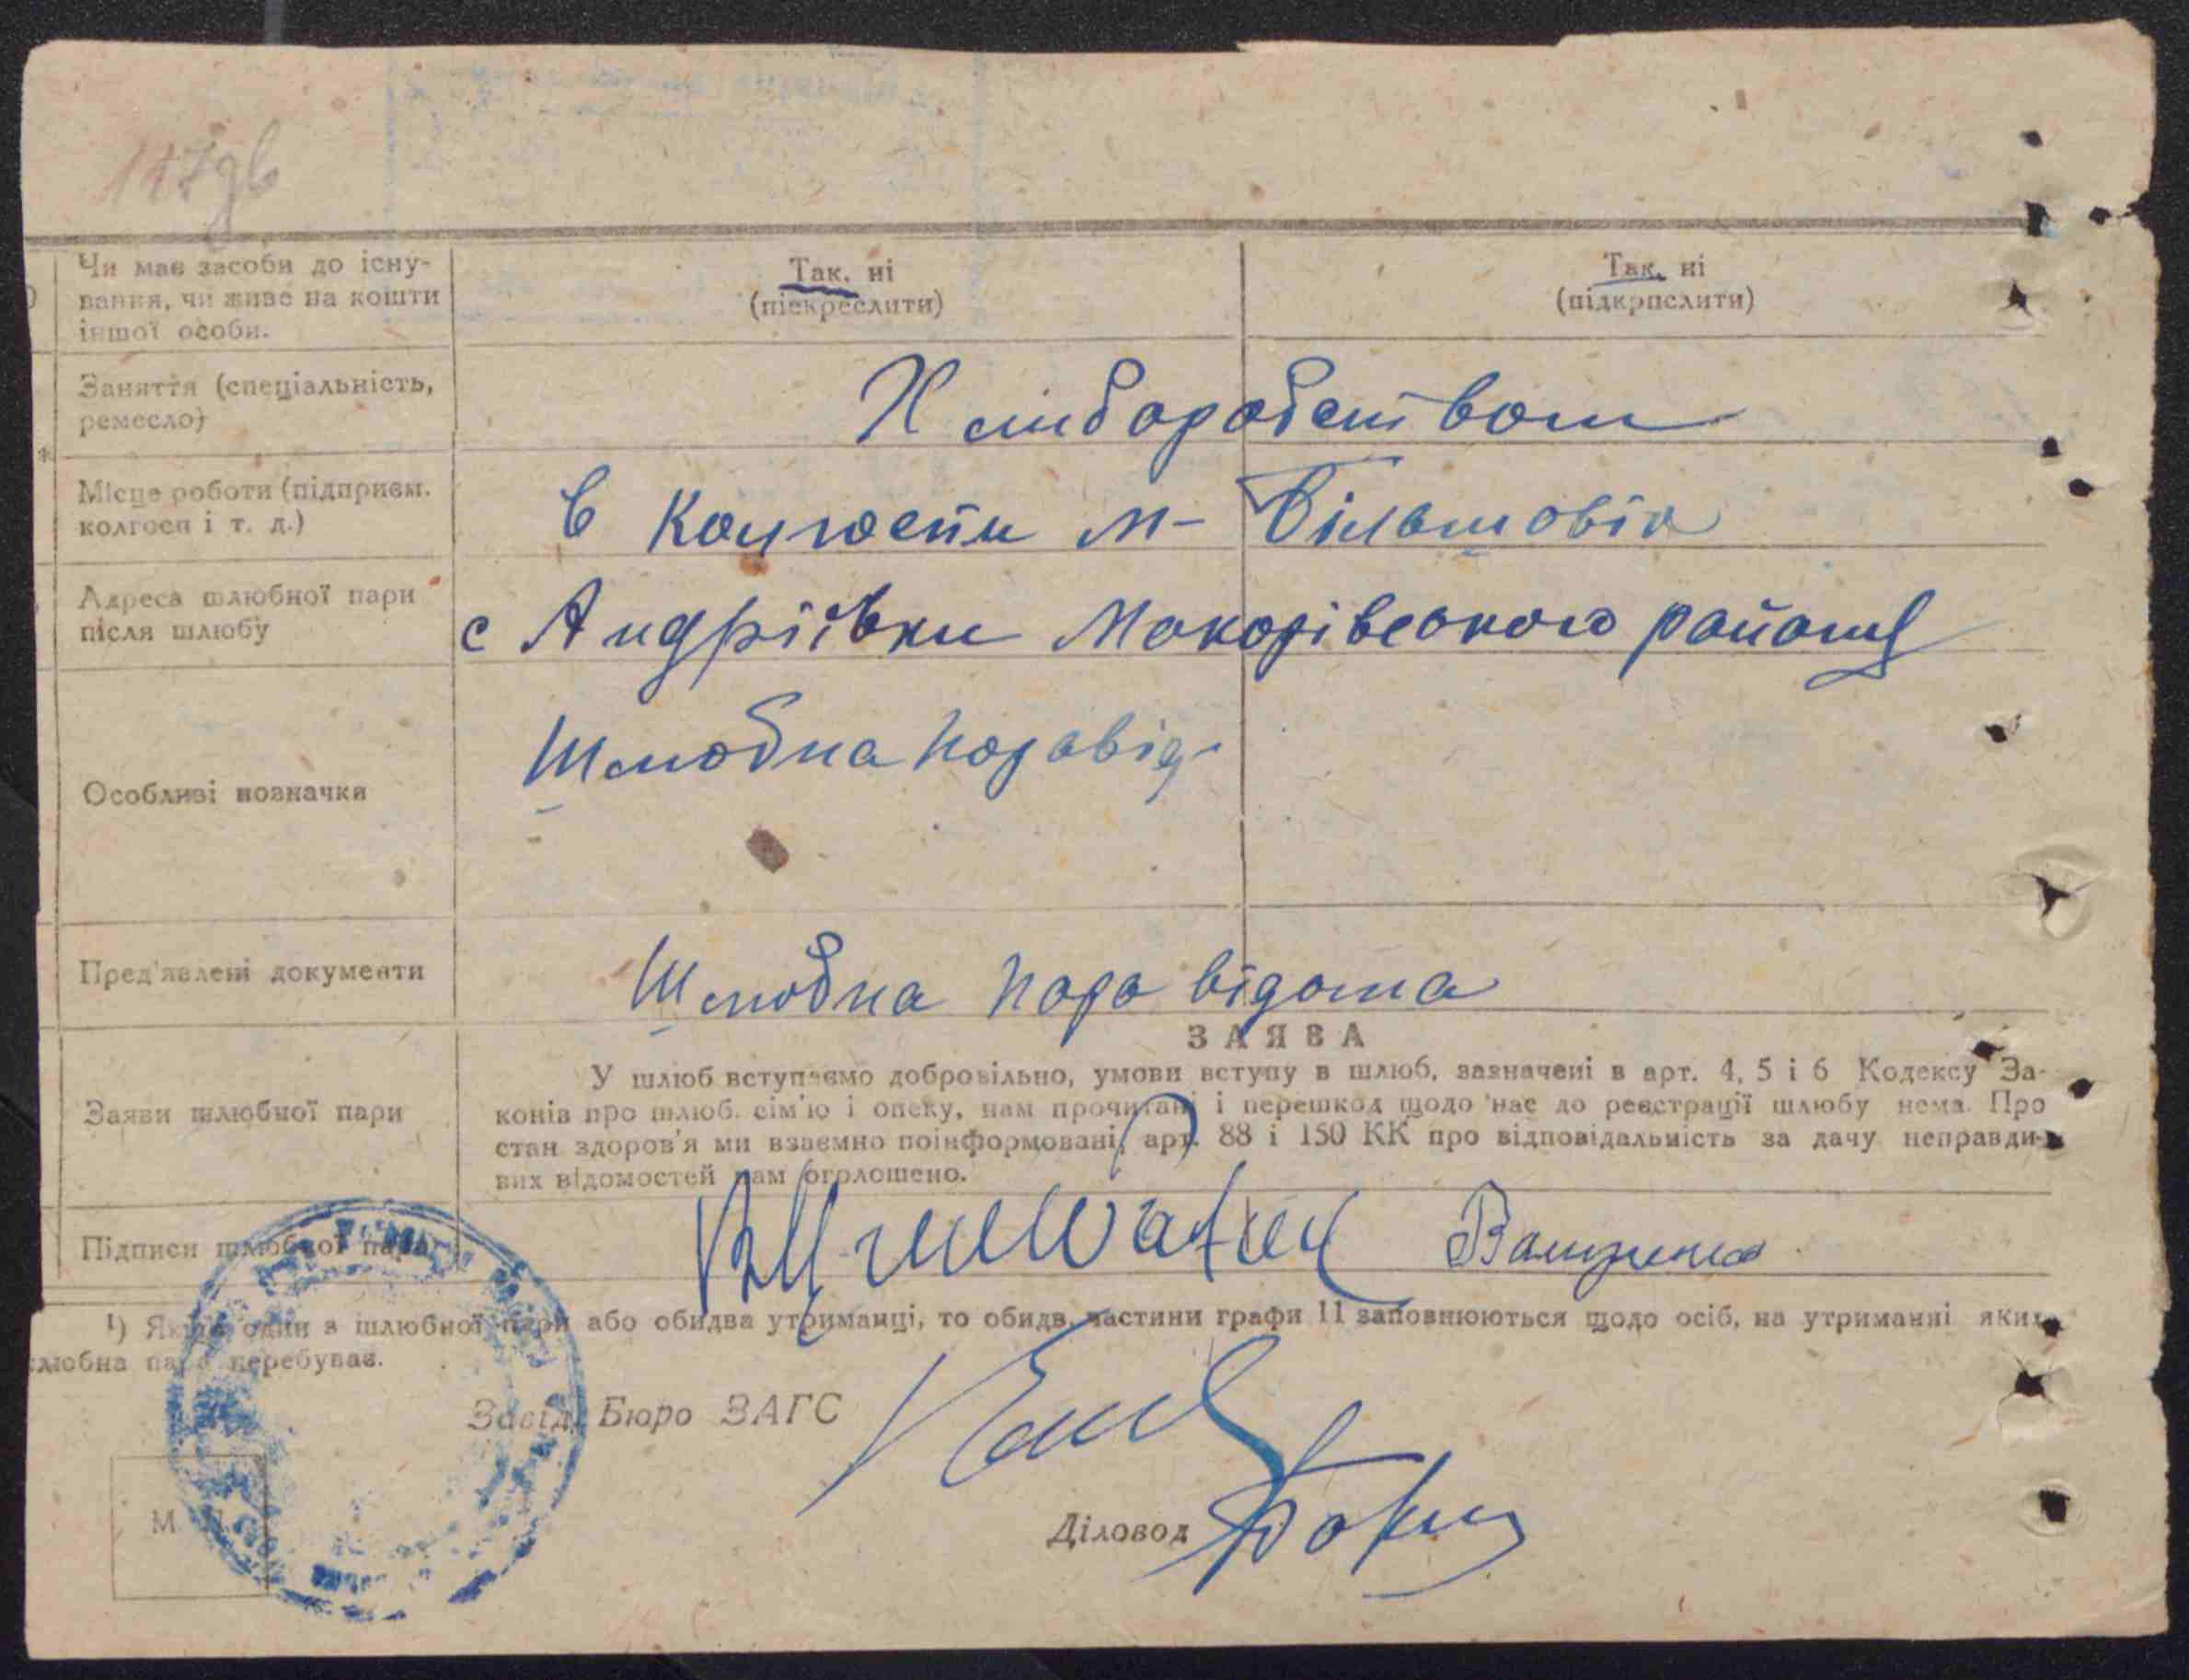 117зв
Чи має засоби до існу-
вання, чи живе на кошти
іншої особи.
Так, ні
(піекреслити)
Так, ні
(підкрпслити)
Заняття (спеціальність,
ремесло)
Хлиборобством
Місце роботи (підприєм.
колгосп і т. д.)
в Колгоспи м- Більшовік
Адреса шлюбної пари
після шлюбу
с Андріївки Макорівского району
Особливі позначки
Шлюбна пора від.
Пред'явлені документи
Шлюбна пора відома
Заяви шлюбної пари
ЗАЯВА
У шлюб вступаємо добровільно, умови вступу в шлюб, зазначені в арт. 4, 5 і 6 Кодексу За-
конів про шлюб, сім'ю і опеку, нам прочитані і перешкод щодо нас до реєстрації шлюбу нема. Про
стан здоров'я ми взаємно поінформовані, арт. 88 і 150 КК про відповідальність за дачу неправди-
вих відомостей нам оголошено.
Підписи шлюбної пари
1) Якщо один з шлюбної пари або обидва утриманці, то обидв. частини графи 11 заповнюються щодо осіб, на утриманні яких
шлюбна пара перебуває.
Завід. Бюро ЗАГС
М.
Діловод